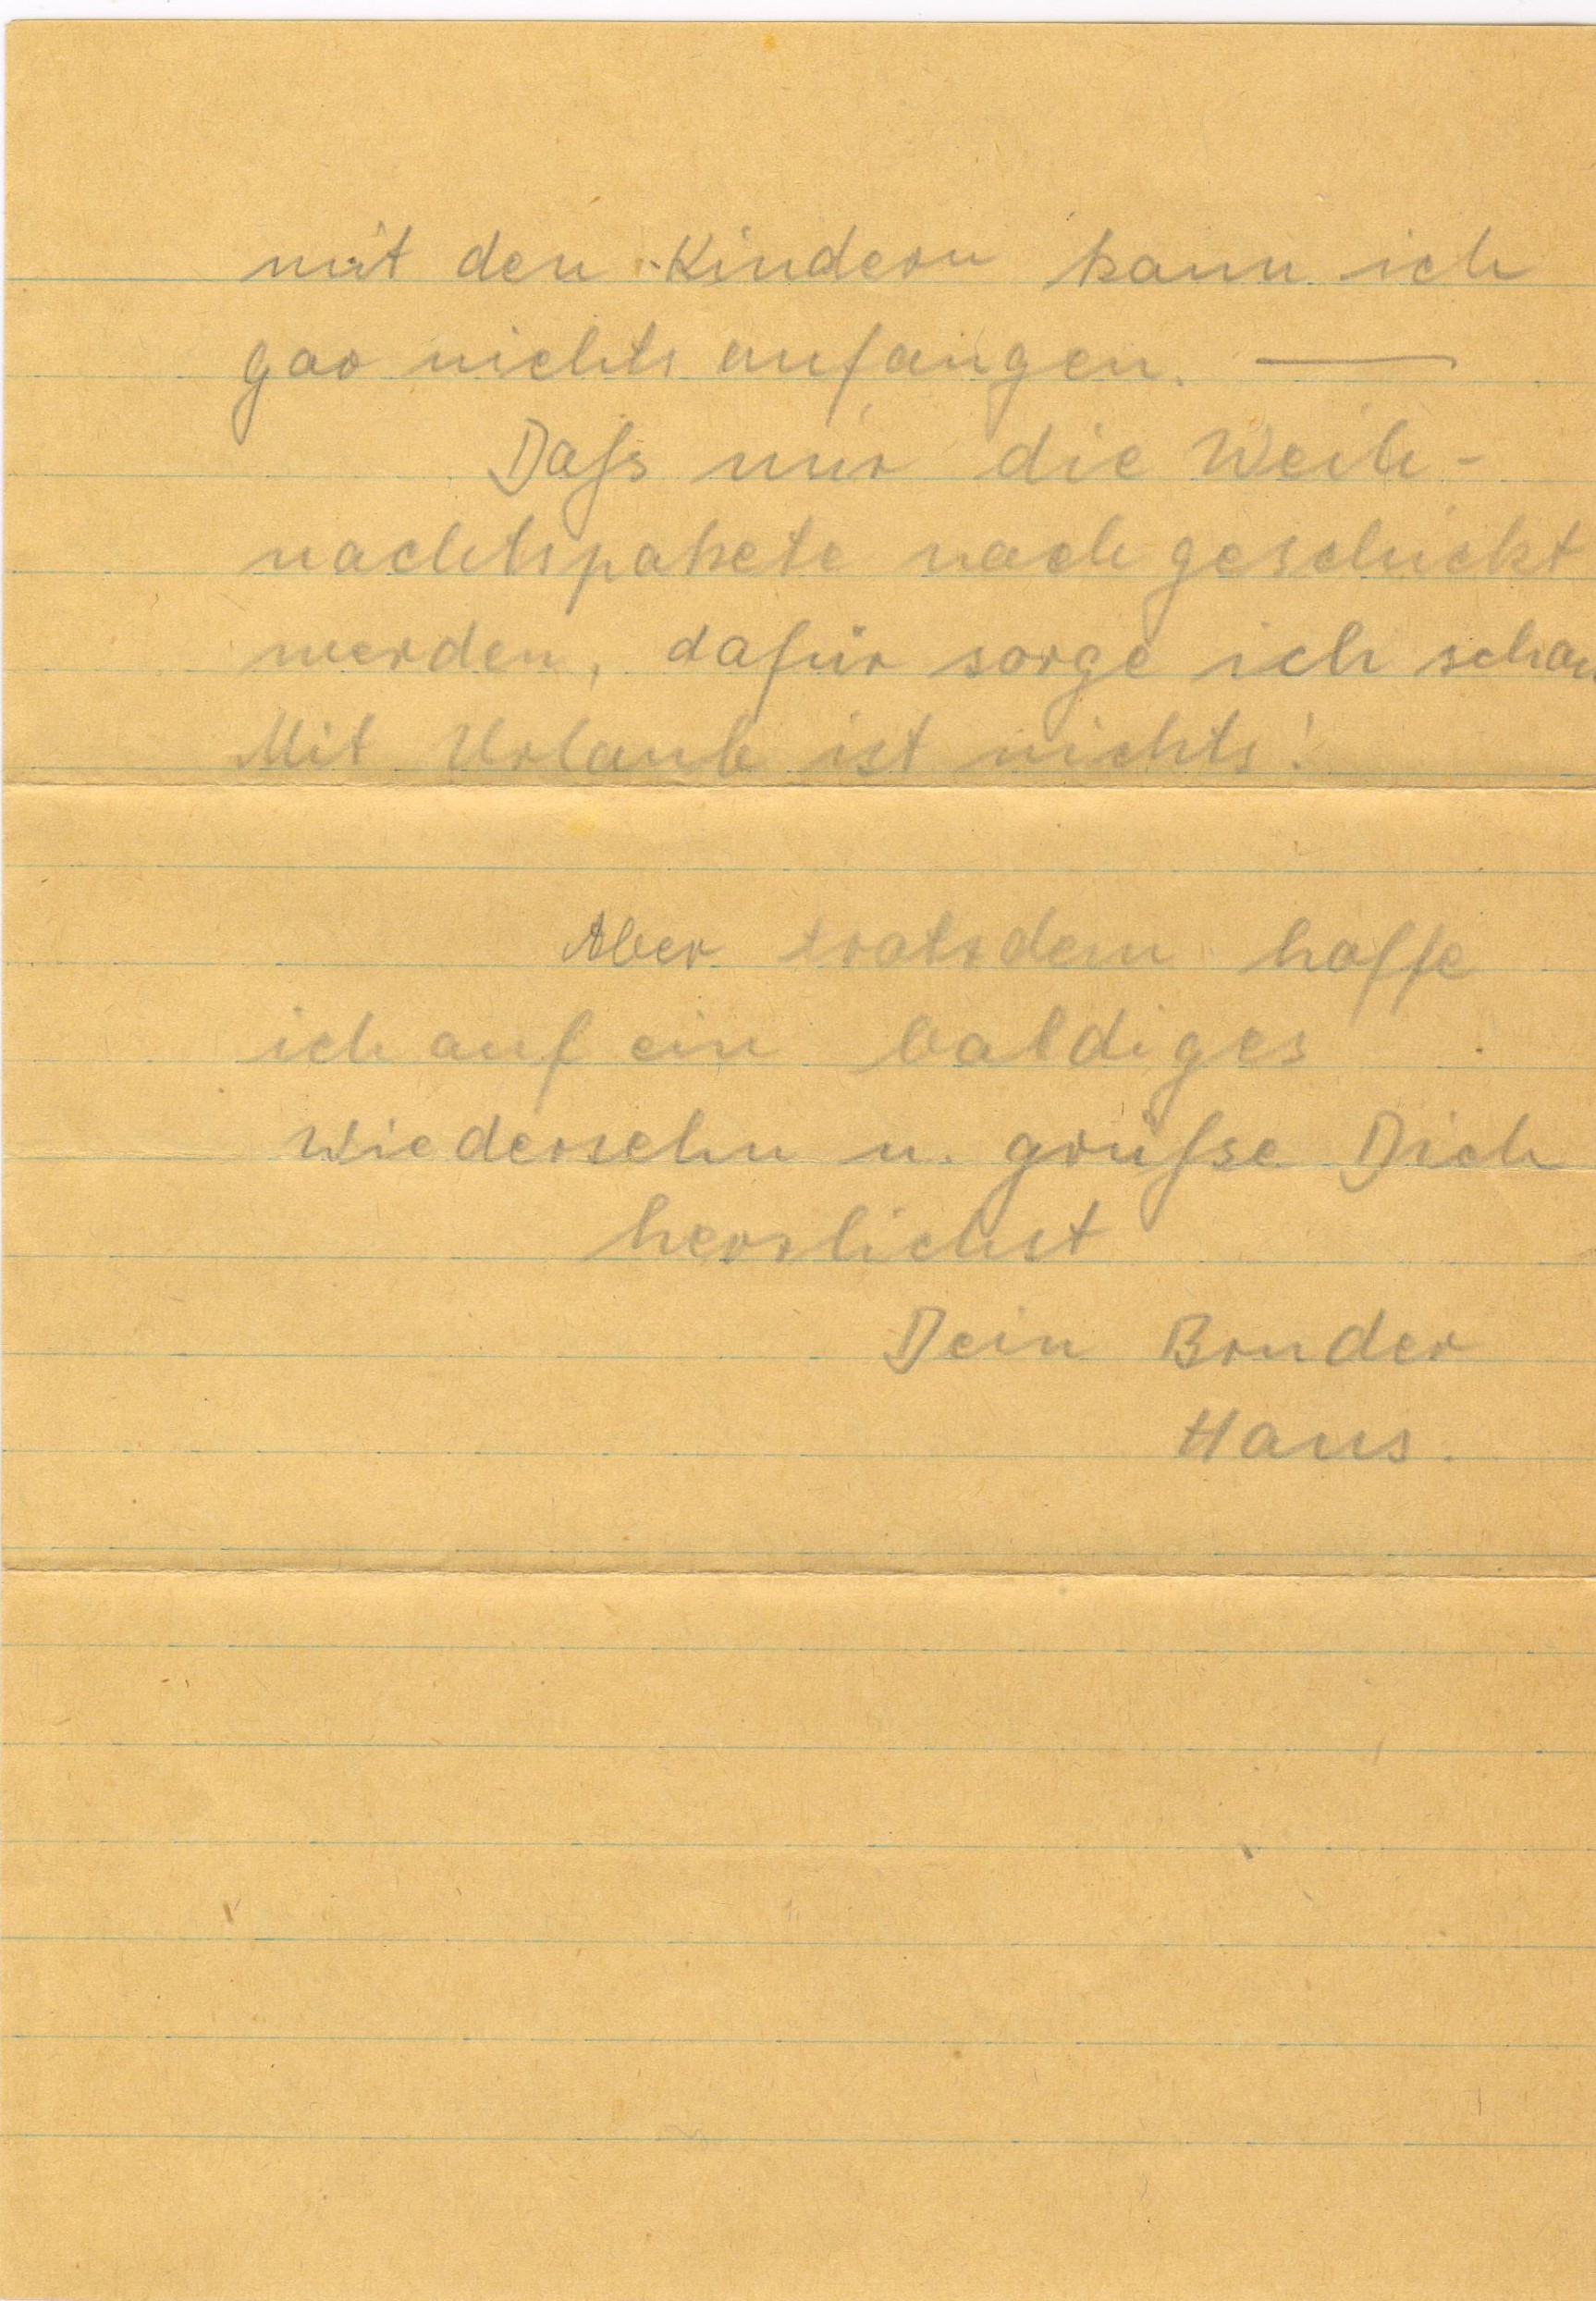 mit den Kindern kann ich
gar nichts anfangen. —
Dafs mir die Weih-
nachtspakete nachgeschickt
werden, dafür sorge ich schon
Mit Urlaub ist nichts!
Aber trotzdem hoffe
ich auf ein baldiges
Wiedersehn u. grüfse Dich
herzlichst
Dein Bruder
Hans.